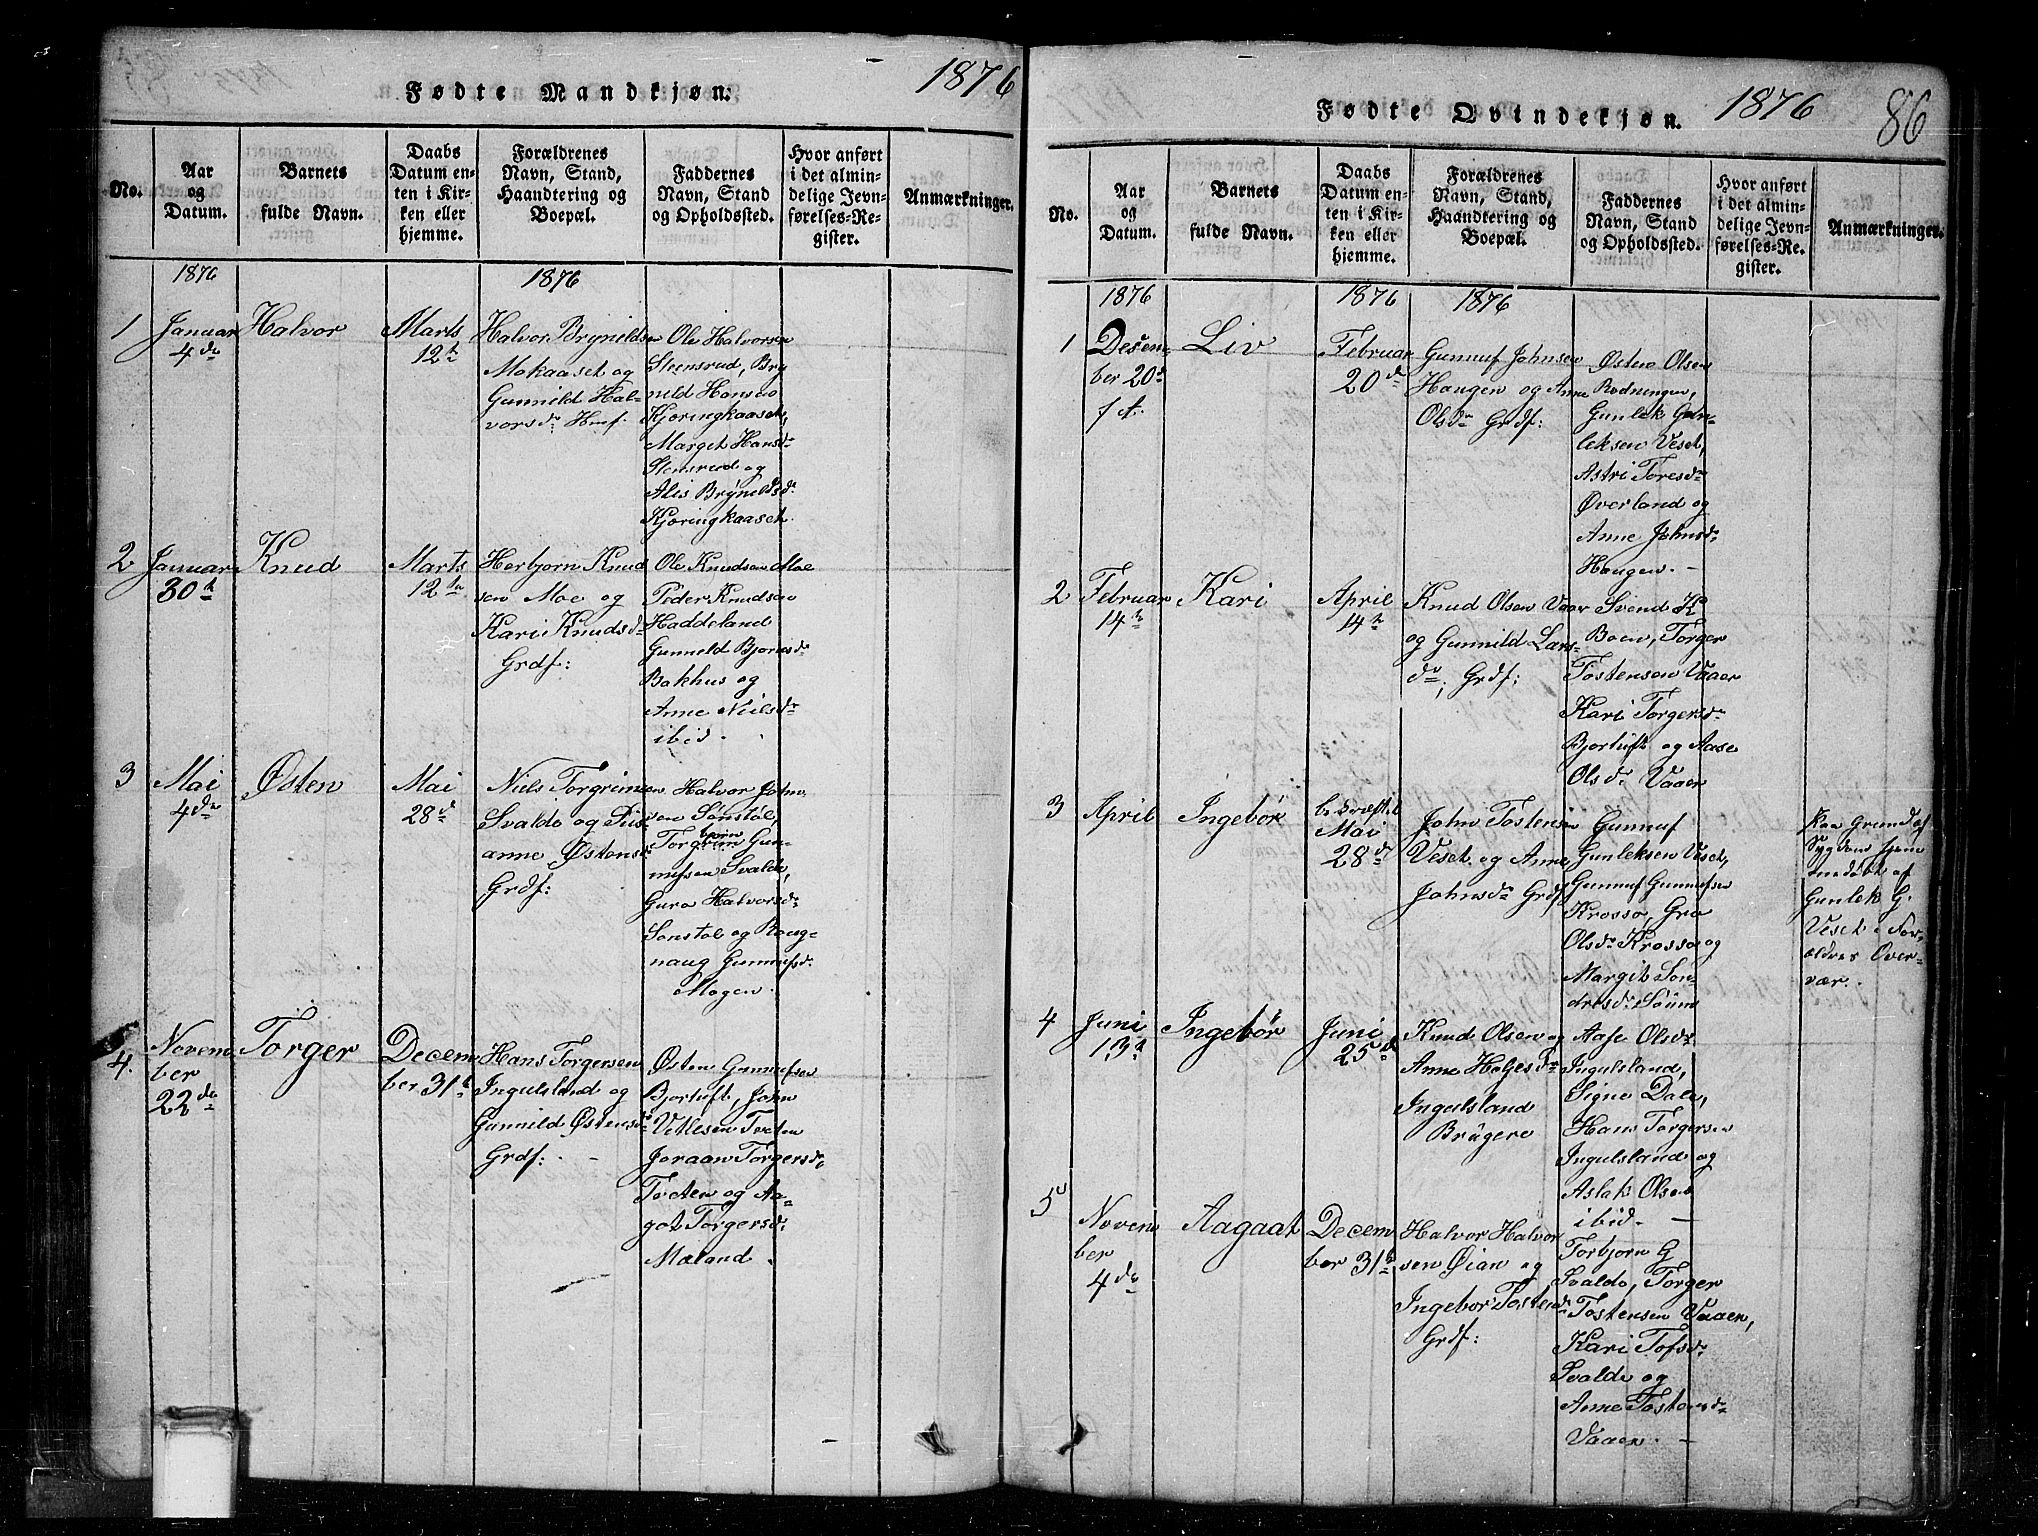 Fødte Mandkjøn. 1876
No.
Aar og Datum.
Barnets fulde Navn.
Daabs Datum enten i Kirken eller hjemme.
Forældrenes Navn, Stand, Haandtering og Boepæl.
Faddernes Navn, Stand og Opholdssted.
Hvor anført i det almindelige Jevnførelses-Register.
Anmærkninger.
1876
1876
1
Januar
4de
Halvor
Marts
12te
Halvor Brynilds
Mokaaset og
Gunnild Hal-
vorsdr. Hmf.
Ole Halvorsen
Stensrud, Bry
nild Hansen
Kjøringkaaset,
Margit Hansdr
Stensrud og
Alis Brynildsdr.
Kjøringkaaset.
2
Januar
30te
Knud
Marts
12te
Herbjørn Knud
sen Moe og
Kari Knudsdr
Grdf:
Ole Knudsen Moe
Peder Knudsen
Haddeland
Gunnild Bjørnsdr
Bakhus og
Anne Nielsdr
ibid.
3
Mai
4de
Østen
Mai
28de
Niels Torgrimsen
Svaldo og Sus-
anne Østensdr
Grdf:
Halvor John
sen Sønstøl,
bjørn
Torgrim Gun-
nufsen Svaldo,
Guro Halvorsdr.
Sønstøl og Roug-
naug Gunnufsdr.
Mogen.
4.
Novem
ber
22de
Torger
Decem
ber 31te
Hans Torgersen
Ingulsland og
Gunnild Østensdr
Grdf:
Østen Gunnufsen
Bjortuft, John
Vetlesen Tveten
Joraan Torgersdr,
Tveten og Aa-
got Torgersdr.
Mæland.
Fødte Qvindekjøn. 1876 86
No.
Aar og Datum.
Barnets fulde Navn.
Daabs Datum enten i Kirken eller hjemme.
Forældrenes Navn, Stand, Haandtering og Boepæl.
Faddernes Navn, Stand og Opholdssted.
Hvor anført i det almindelige Jevnførelses-Register.
Anmærkninger.
1876
1876
1876
1
Desem-
ber 20de
f A.
Liv
Februar
20de
Gunnuf Johnsen
Haugen og Anne
Olsdr Grdf:
Østen Olsen
Rodningen,
Gunlek Gun-
leksen Veset,
Astri Toresdr
Øverland og
Anne Johnsdr.
Haugen. -
2
Februar
14te
Kari
April
14te
Knud Olsen Vaaer
og Gunnild Lars-
dr, Grdf:
Svend K
Boen, Torger
Tostensen Vaaer
Kari Torgersdr
Bjortuft og Aase
Olsdr. Vaaer
3
April
Ingebør
bekræftet
Mai
28de
John Tostensen
Veset og Anne
Johnsdr Grdf
Gunnuf
Gunleksen Veset,
Gunnuf Gunnufsen
Krosso, Gro
Olsdr Krosso og
Margit Søn-
dresdr Søum
Paa Grund af
Sygdom hjem
medøbt af
Gunlek G.
Veset i For-
ældres Over-
vær.
4
Juni
13te
Ingebør
Juni
25de
Knud Olsen og
Anne Helgesdr
Ingulsland
Brugere
Aase Olsdr.
Ingulsland,
Signe Dale,
Hans Torgersen
Ingulsland og
Aslak Olsen
ibid. -
5
Novem
ber
4de
Aagaat
Decem
ber 31te
Halvor Halvor
sen Øian og
Ingebor Tostensdr
Grdf:
Torbjørn G
Svaldo, Torger
Tostensen Vaaer,
Kari Tofsdr.
Svaldo og
Anne Tostensdr.
Vaaer. -